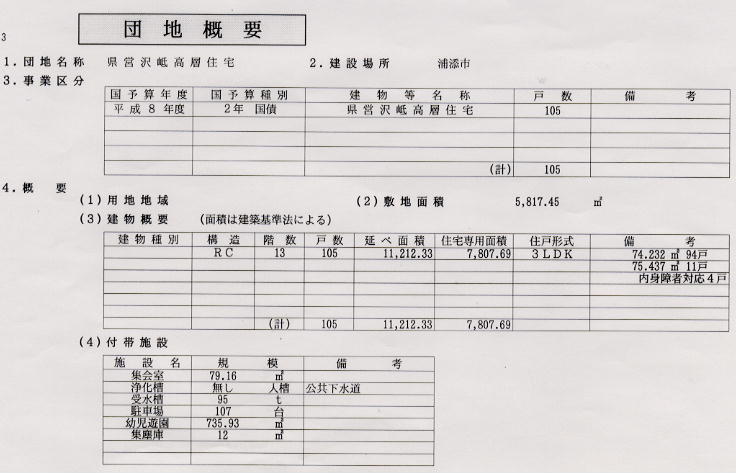 3
団地概要
1.団地名称 県営沢岻高層住宅 2.建設場所 浦添市
3.事業区分
国予算年度 国予算種別 建物等名称 戸数 備考
平成8年度 2年国債 県営沢岻高層住宅 105
(計) 105
4.概要
(1)用地地域 (2)敷地面積 5,817.45 ㎡
(3)建物概要 (面積は建築基準法による)
建物種別 構造 階数 戸数 延べ面積 住宅専用面積 住戸形式 備考
RC 13 105 11,212.33 7,807.69 3LDK 74.232 ㎡ 94戸
75.437 ㎡ 11戸
内身障者対応4戸
(計) 105 11,212.33 7,807.69
(4)付帯施設
施設名 規模 備考
集会室 79.16 ㎡
浄化槽 無し 人槽 公共下水道
受水槽 95 t
駐車場 107 台
幼児遊園 735.93 ㎡
集塵庫 12 ㎡